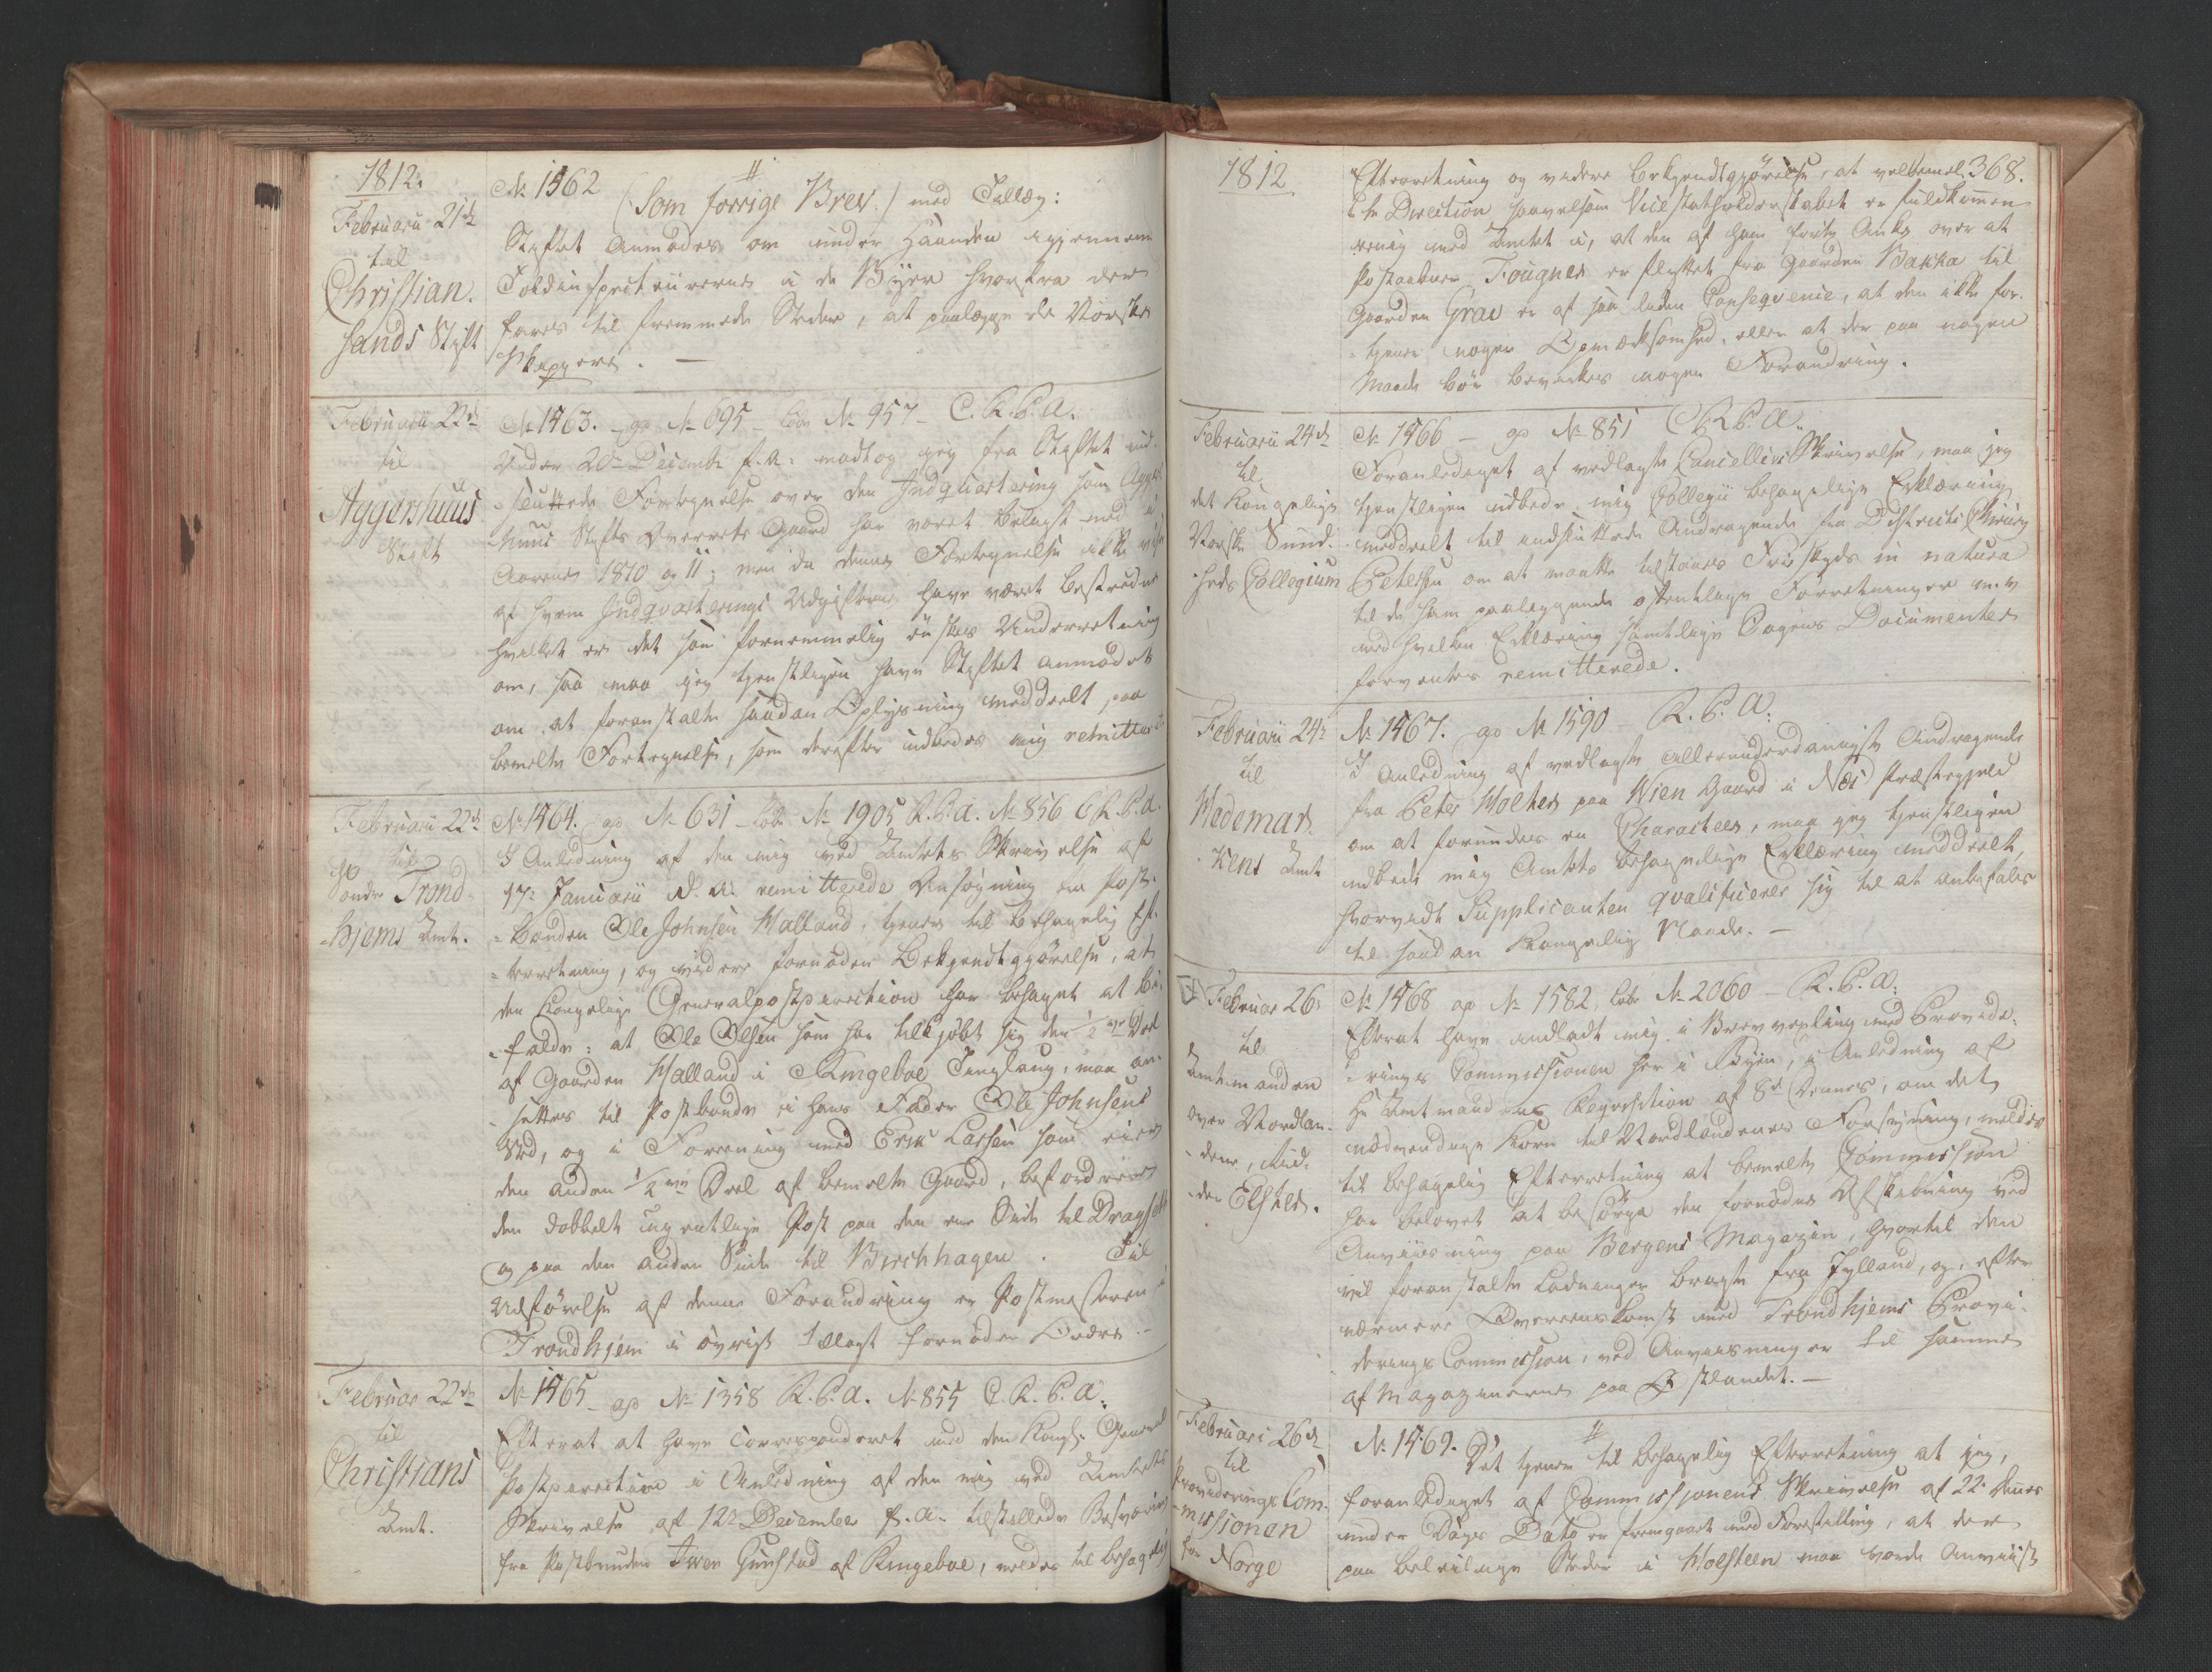 1812.
Februarii 21de
til
Christian.
sands Stift
No 1562
(Som forrige Brev.) med Tillæg:
Stiftet anmodes om under Haanden igjennem
Toldinspecteurerne i de Byer hvorfra der
fares til fremmede Steder, at paalægge de Norske
Skippere. —
Februarii 22de
til
Aggershuus
Stift
No 1463. go No 695 - No 957 - C.R.P.A.
Under 20de Decembr f. A. modtog jeg fra Stiftet ind-
sluttede Fortegnelse over den Indqvartering som Agger-
huus Stifts Overrets Gaard har været belagt med i
Aarene 1810 og 11; men da denne Fortegnelse ikke viser
af hvem Indqvarterings Udgifterne have været bestredne
hvilket er det som fornemmelig önskes Underretning
om, saa maa jeg tjenstligen have Stiftet anmodet
om at foranstalte saadan Oplysning meddeelt paa
bemelte Fortegnelse, som derefter udbedes mig remitteret
Februarii 22de
til
Söndre Trond-
hjems Amt.
No 1464. go No 631 - No 1905 R.P.A. No 856 C.R.P.A.
I Anledning af den mig ved Amtets Skrivelse af
17de Januarii d. A. remitterede Ansøgning fra Post-
bonden Ole Johnsen Halland, tjener til behagelig Ef-
terretning, og videre fornøden Bekjendtgjörelse, at
den Kongelige Generalpostdirection har behaget at bi-
falde: at Ole Olsen som har tilkjøbt sig den 1/2 Deel
af Gaarden Halland i Ringeboe Tinglaug, maa an-
sættes til Postbonde i hans Fader Ole Johnsens
Sted, og i Foreening med Erik Larsen som eier
den anden 1/2 Deel af bemelte Gaard, befordrer
den dobbelt ugentlige Post paa den ene Side til Dragset
og paa den anden Side til Birchhagen. Til
Udførelse af denne Forandring er Postmesteren i
Trondhjem i øvrigt tillagt fornøden Ordre. —
Februar 22de
til
Christians
Amt.
No 1465 - go No 1358 R.P.A. No 855 C.R.P.A.
Efterat at have correspondert med den Kongl. General
Postdirection i Anledning af den mig ved Amtets
Skrivelse af 12te December f. A. tilstillede Besværing
fra Postbonden Iver Gunstad af Ringeboe, meldes til behagelig
1812
368.
Efterretning og videre Bekjendtgjörelse, at velbemel-
te Direction saavelsom Vicestatholderskabet er fuldkommen
eenig med Amtet i, at den af ham førte Anke over at
Postaabner Fougner er flyttet fra Gaarden Bakka til
Gaarden Grav er af saa liden Conseqvence, at den ikke for-
tjener nogen Opmærksomhed, eller at der paa nogen
Maade bör bevirkes nogen Forandring.
Februarii 24de
til
det Kongelige
Norske Sund-
heds Collegium
No 1466 - go No 851 C.R.P.A.
Foranlediget af vedlagte Cancellie Skrivelse, maa jeg
tjenstligen udbede mig Collegii behagelige Erklæring
meddeelt til indsluttede Andragende fra Districts Chirurg
Petersen om at maatte tilstaaes Frie Skyds in natura
til de ham paaliggende offentlige Forretninger m.v.
med hvilken Erklæring samtlige Sagens Documenter
forventes remitterede.
Februarii 24de
til
Hedemar-
kens Amt
No 1467. go No 1590 - R.P.A.
I Anledning af vedlagte allerunderdanigste Andragende
fra Peter Wolter paa Wien Gaard i Næs Præstegjeld
om at forundes en Characteer, maa jeg tjenstligen
udbede mig Amtets behagelige Erklæring meddeelt,
hvorvidt Supplicanten qvalificerer sig til at anbefales
til saadan Kongelig Naade. —
Februar 26de
til
Amtmanden
over Nordlan-
dene, Rid-
der Elster.
No 1468 go No 1582 No 2060 - R.P.A.
Efterat have indladt mig i Brevvexling med Provide-
rings Commissionen her i Byen, i Anledning af
Hr Amtmandens Reqvisition af 8de dennes, om det
nødvendige Korn til Nordlandenes Forsyning, meldes
til behagelig Efterretning at bemelte Commission
har belovet at besørge den fornødne Afskibning ved
Anviisning paa Bergens Magazin, hvortil den
vil foranstalte Ladninger bragte fra Jylland, og, efter
nærmere Overeenskomst med Trondhjems Provi-
derings Commission, ved Anviisninger til samme
af Magazinerne paa Østlandet. —
Februari 26de
til
Provideringscom-
missionen
for Norge
No 1469.
Det tjener til behagelig Efterretning at jeg,
foranlediget af Commissionens Skrivelse af 22de dennes
under Dags Dato er fremgaaet med Forestilling, at der
paa beleilige Steder i Holsteen maa vorde anviist